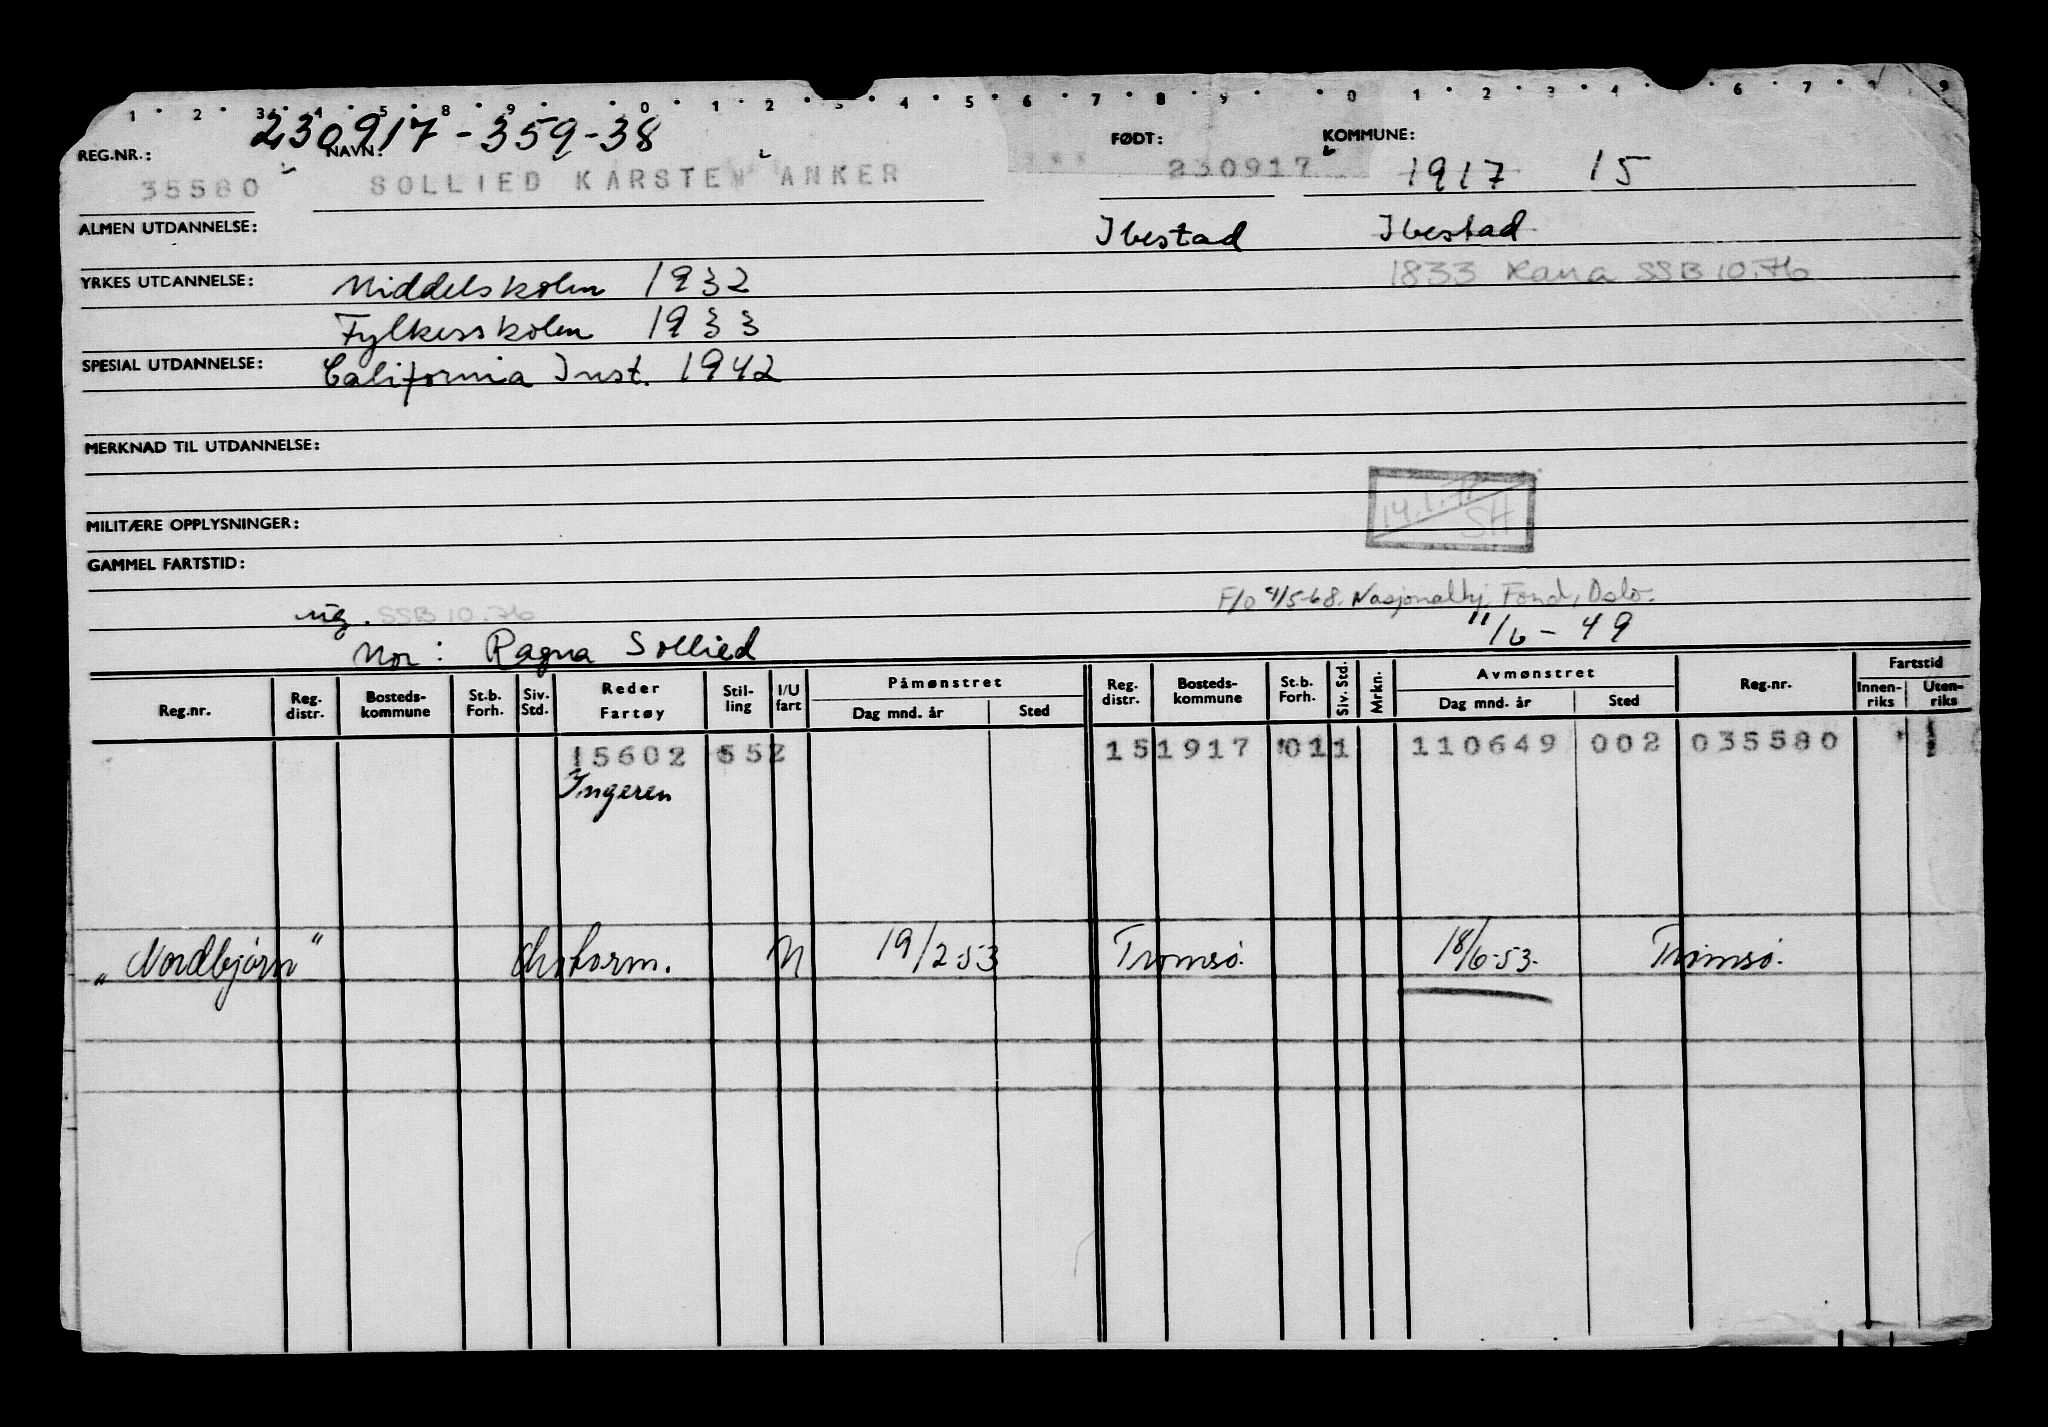 1 2 3 4 5 8 9 0 1 2 3 4 5 6 7 8 9 0 1 2 3 4 6 7 8 9
230917-359-38
REG.NR.: NAVN: FØDT: KOMMUNE:
35580 SOLLIED KARSTEN ANKER 230917 1917 15
ALMEN UTDANNELSE: Ibestad Ibestad
YRKES UTDANNELSE: Middelskolen 1932 1833 Rana SSB 10.76
Fylkesskolen 1933
SPESIAL UTDANNELSE: California Inst. 1942
MERKNAD TIL UTDANNELSE:
14.1.71 SH
MILITÆRE OPPLYSNINGER:
GAMMEL FARTSTID:
F/O 4/5-68. Nasjonalhj. Fond, Oslo.
ug. SSB 10.76 11/6 - 49
Mor: Ragna Sollied
Reg.nr. Reg. distr. Bosteds- kommune St.b. Forh. Siv. Std. Reder Fartøy Stil- ling I/U fart Påmønstret Dag mnd. år Sted Reg. distr. Bosteds- kommune St.b. Forh. Siv. Std. Mrkn. Avmønstret Dag mnd. år Sted Reg.nr. Fartstid Innen- riks Uten- riks
15602 552 151917 011 110649 002 035580 1
Ingeren
"Nordbjørn" N 19/2-53 Tromsø. 18/6-53. Tromsø.